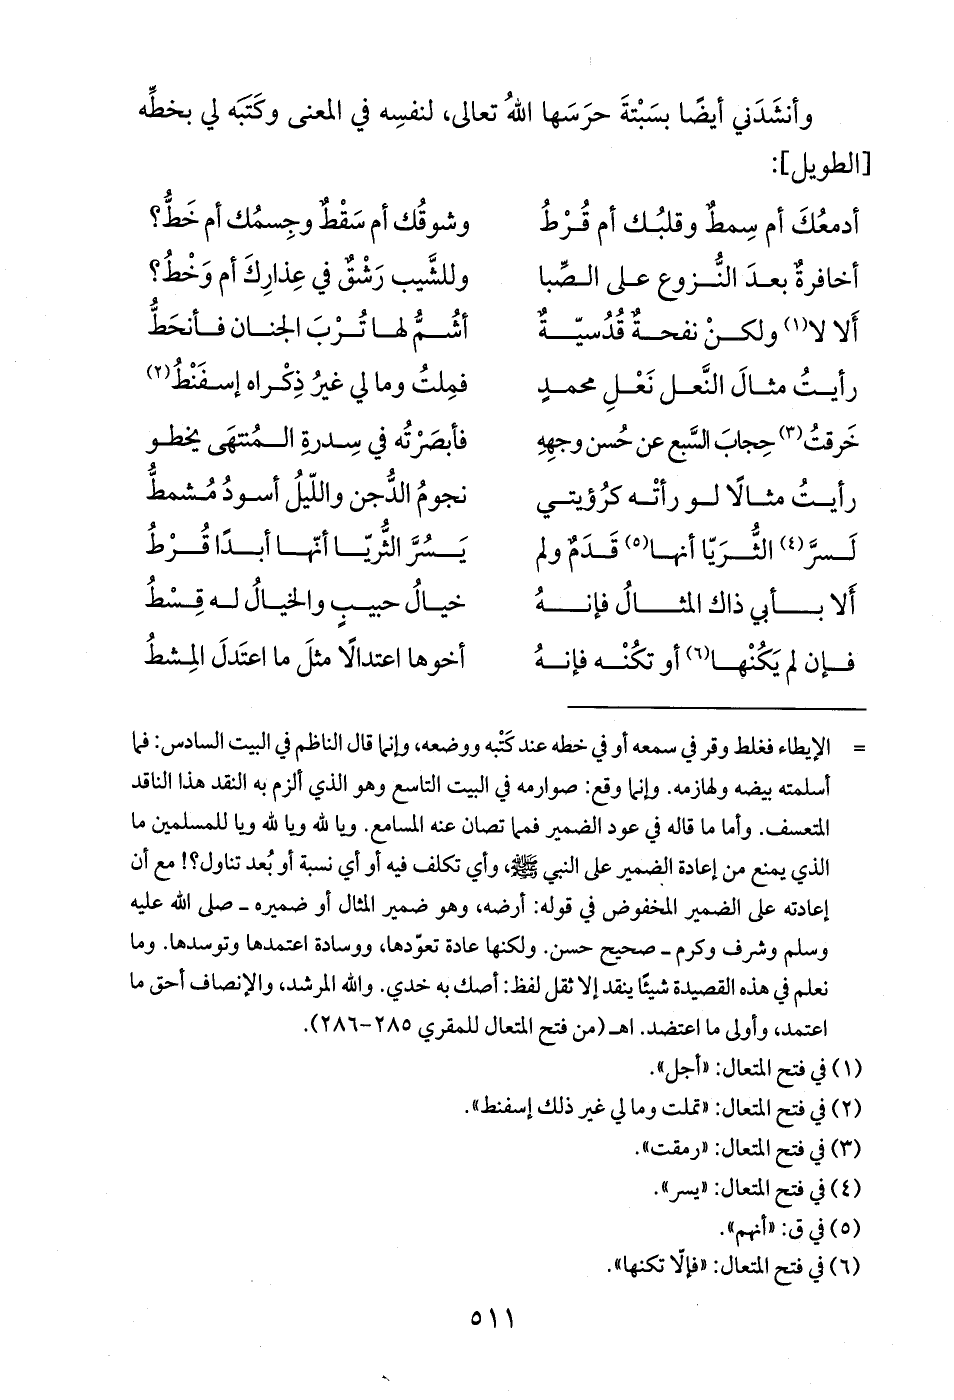 وأنشَدَني أيضًا بسَبْتةَ حرَسَها اللهُ تعالى، لنفسِه في المعنى وكَتَبَه لي بخطِّه
[الطويل]:
أدمعُكَ أم سِمطٌ وقلبُـك أم قُـرْطُ    وشوقُك أم سَقْطٌ وجِسمُك أم خَطُّ؟
أخافرةٌ بعـدَ النُّـزوع علـى الـصِّبا    وللشَّيب رَشْقٌ في عِذارِكَ أم وَخْطُ؟
ألا لا(١) ولكـنْ نفحـةٌ قُدُسيّـةٌ    أشُـمُّ لهـا تُـرْبَ الجنـان فـأنحَطُّ
رأيـتُ مثـالَ النَّعـل نَعْـلِ محمـدٍ    فمِلتُ وما لي غيرُ ذِكْراه إسـفَنْطُ(٢)
خَرقتُ(٣) حِجابَ السَّبع عن حُسن وجهِهِ    فأبصَرْتُه في سِدرةِ الـمُنتهَى يخطـو
رأيـتُ مثـالًا لـو رأتْـه كرُؤيتـي    نجومُ الدُّجن واللّيلُ أسـودُ مُـشمطُّ
لَـسرَّ(٤) الثُّـرَيّا أنهـا(٥) قَـدَمٌ ولم    يَـسُرَّ الثُّريّـا أنّهـا أبـدًا قُـرْطُ
ألا بـأبي ذاك المثـالُ فإنـهُ    خيـالُ حبيـبٍ والخيـالُ لـه قِـسْطُ
فـإن لم يَكُنْهـا(٦) أو تكُنْـه فإنـهُ    أخوها اعتدالًا مثلَ ما اعتَدلَ المِشطُ
= الإيطاء فغلط وقر في سمعه أو في خطه عند كَتْبه ووضعه، وإنما قال الناظم في البيت السادس: فما
أسلمته بيضه ولهازمه. وإنما وقع: صوارمه في البيت التاسع وهو الذي ألزم به النقد هذا الناقد
المتعسف. وأما ما قاله في عود الضمير فمما تصان عنه المسامع. ويا لله ويا لله ويا للمسلمين ما
الذي يمنع من إعادة الضمير على النبي ﷺ، وأي تكلف فيه أو أي نسبة أو بُعد تناول؟! مع أن
إعادته على الضمير المخفوض في قوله: أرضه، وهو ضمير المثال أو ضميره ـ صلى الله عليه
وسلم وشرف وكرم ـ صحيح حسن. ولكنها عادة تعوّدها، ووسادة اعتمدها وتوسدها. وما
نعلم في هذه القصيدة شيئًا ينقد إلا ثقل لفظ: أصك به خدي. والله المرشد، والإنصاف أحق ما
اعتمد، وأولى ما اعتضد. اهـ (من فتح المتعال للمقري ٢٨٥-٢٨٦).
(١) في فتح المتعال: «أجل».
(٢) في فتح المتعال: «ثملت وما لي غير ذلك إسفنط».
(٣) في فتح المتعال: «رمقت».
(٤) في فتح المتعال: «يسر».
(٥) في ق: «أنهم».
(٦) في فتح المتعال: «فإلّا تكنها».
٥١١